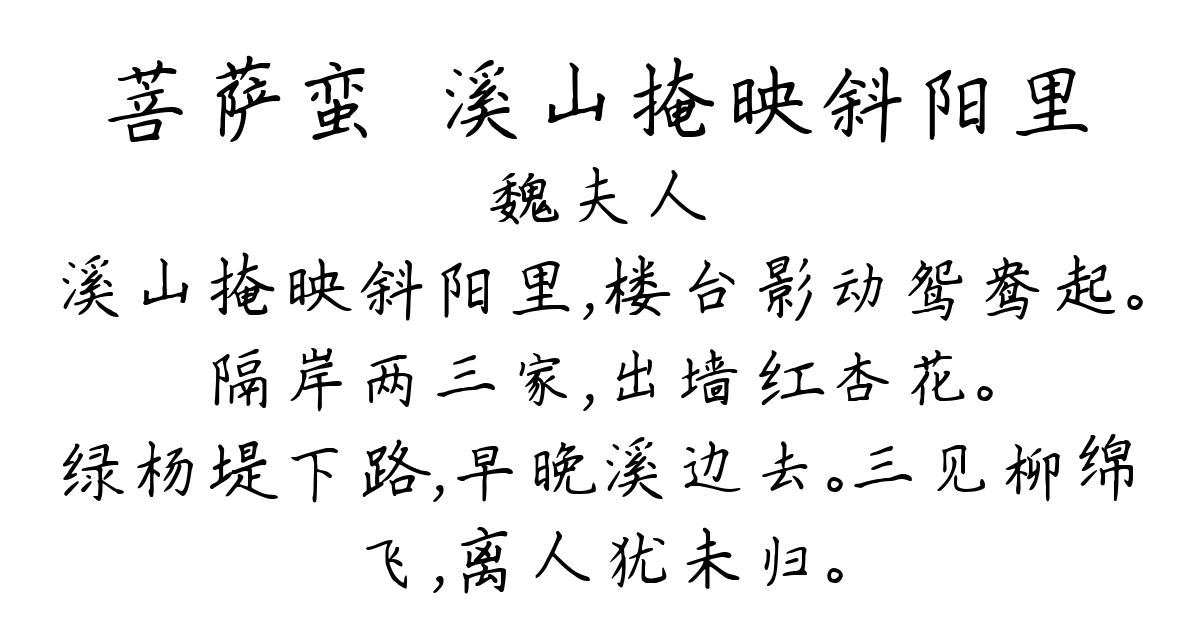 菩萨蛮 溪山掩映斜阳里
魏夫人
溪山掩映斜阳里,楼台影动鸳鸯起。
隔岸两三家,出墙红杏花。
绿杨堤下路,早晚溪边去。三见柳绵
飞,离人犹未归。